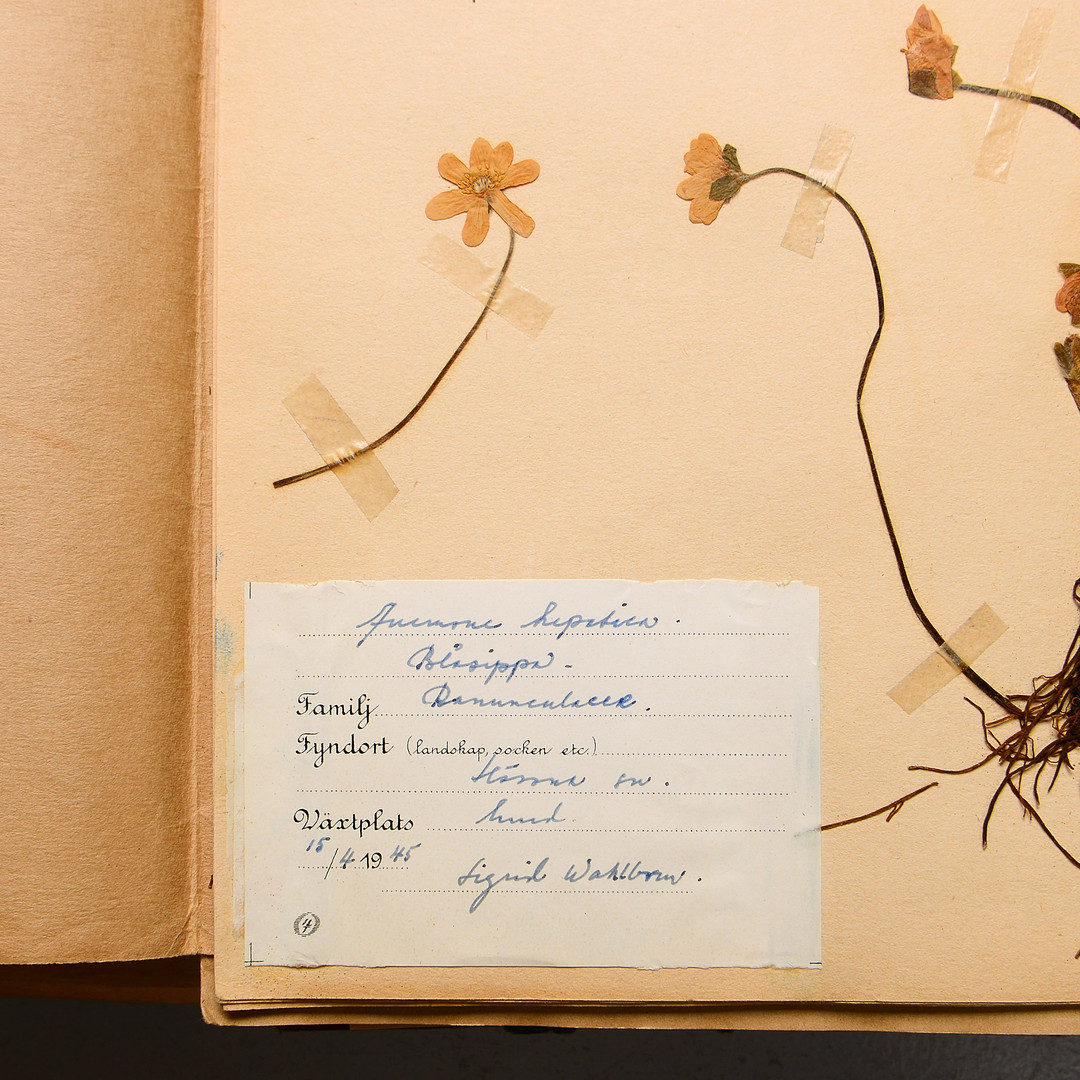 Anemone hepatica.
Blåsippa -
Familj Ranunculaceæ.
Fyndort (landskap, socken etc.)
sn.
Växtplats lund.
15/4 1945
Sigrid Wahlbom.
4